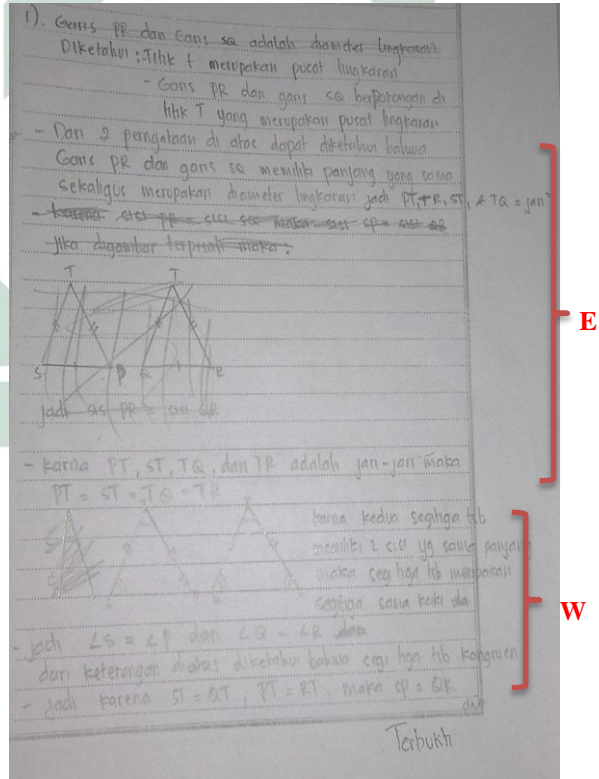 1). Garis PR dan Garis SQ adalah diameter lingkaran
Diketahui : Titik t merupakan pusat lingkaran
- Garis PR dan garis SQ berpotongan di
titik T yang merupakan pusat lingkaran
- Dari 2 pernyataan di atas dapat diketahui bahwa
Garis PR dan garis SQ memiliki panjang yang sama
sekaligus merupakan diameter lingkaran jadi PT, TR, ST, & TQ = jari²
- karena sisi PR = sisi SQ maka sisi SP = sisi QR
- Jika digambar terpisah maka :
T T
S P Q R
jadi sisi PR = sisi QR
E
- karna PT, ST, TQ, dan TR adalah jari-jari maka
PT = ST = TQ = TR
karna kedua segitiga tsb
memiliki 2 sisi yg sama panjang
maka segitiga tsb merupakan
segitiga sama kaki
W
- jadi ∠S = ∠P dan ∠Q = ∠R dan
dari keterangan diatas diketahui bahwa segitiga tsb kongruen
- jadi karena ST = QT, PT = RT, maka SP = QR
Terbukti